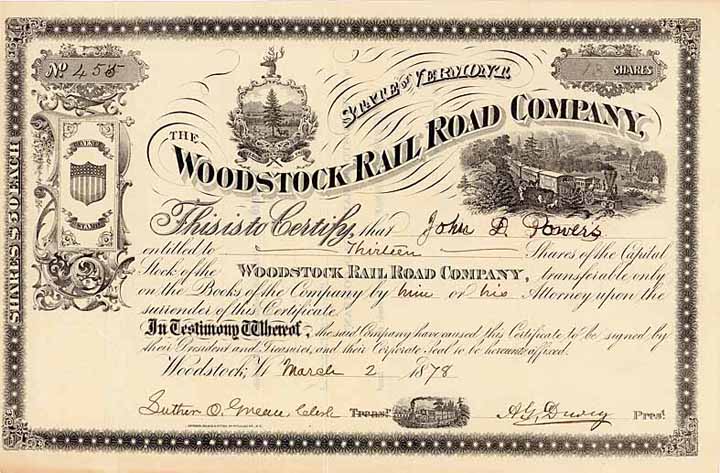 No. 455
13 SHARES
STATE OF VERMONT.
THE
WOODSTOCK RAIL ROAD COMPANY,
SHARES $50 EACH
STAMP
This is to Certify, that John D. Powers
entitled to Thirteen Shares of the Capital
Stock of the WOODSTOCK RAIL ROAD COMPANY, transferable only
on the Books of the Company by him or his Attorney upon the
surrender of this Certificate.
In Testimony Whereof, the said Company have caused this Certificate to be signed by
their President and Treasurer, and their Corporate Seal to be hereunto affixed.
Woodstock, Vt March 2 1878
Luther O. Greene Clerk Treasr. Prest.